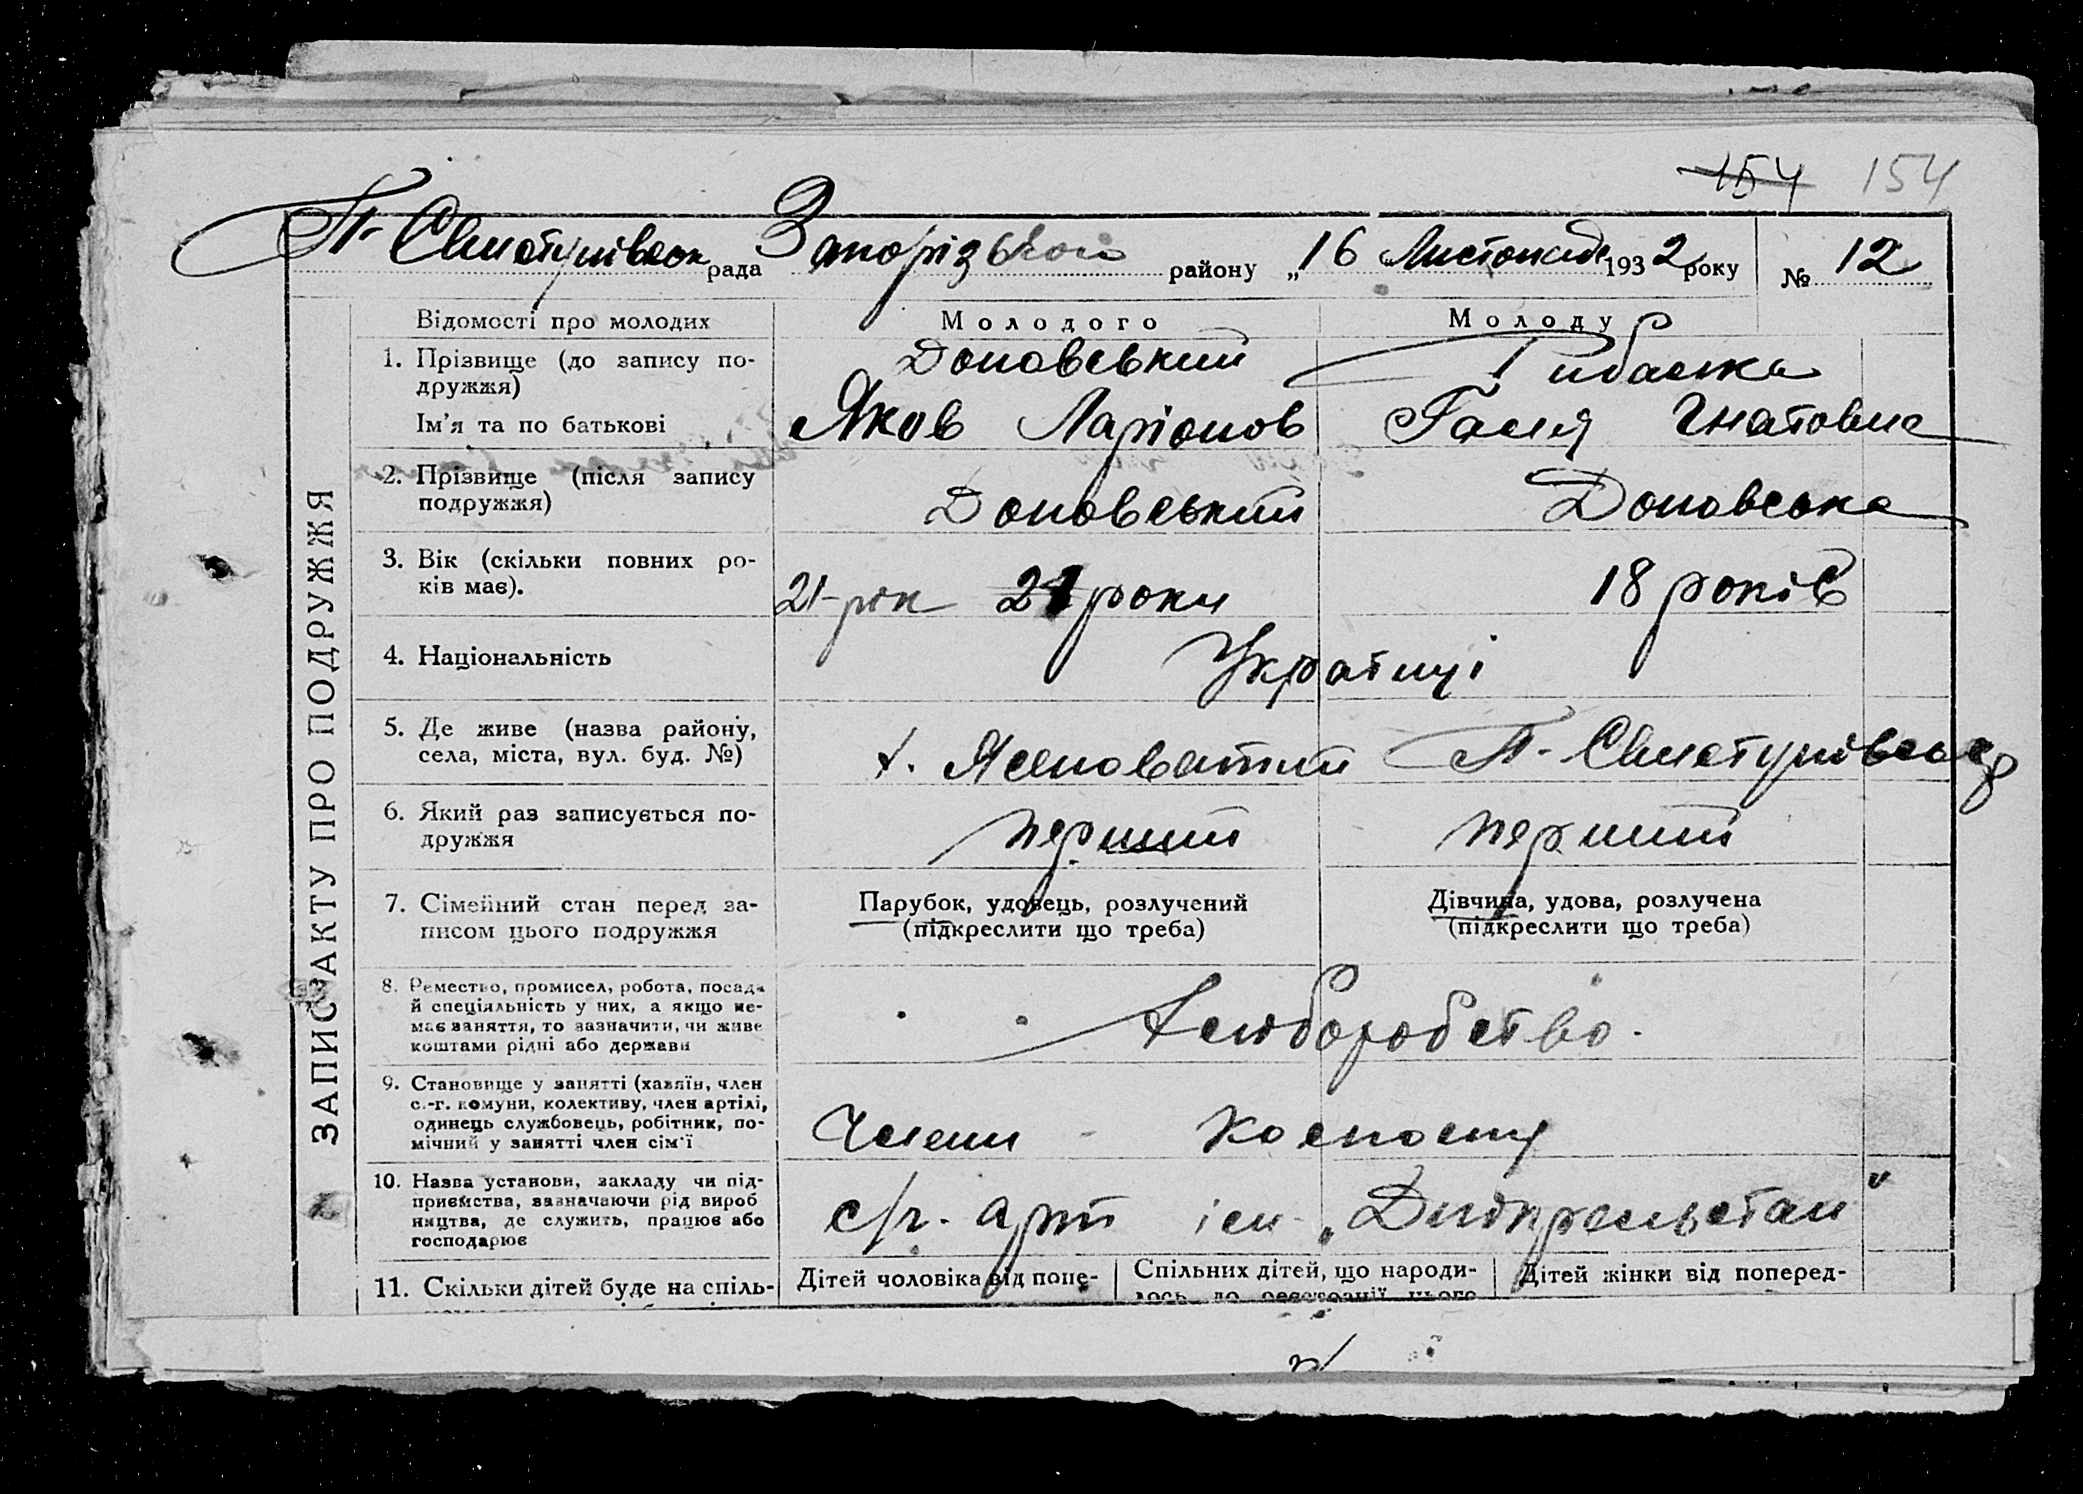 154 154
П- Свистунівськ рада Запорізького району „16 Листопада 1932 року № 12
ЗАПИС АКТУ ПРО ПОДРУЖЖЯ
Відомості про молодих Молодого Молоду
1. Прізвище (до запису по-
дружжя)
Доновський Рибалка
Ім'я та по батькові Яков Ларіонов Галя Гнатовна
2. Прізвище (після запису
подружжя)
Доновський Доновська
3. Вік (скільки повних ро-
ків має).
21-рік 21 роки 18 років
4. Національність Українці
5. Де живе (назва району,
села, міста, вул. буд. №)
х. Ясиноватий П- Свистунівськ
6. Який раз записується по-
дружжя
перший перший
7. Сімейний стан перед за-
писом цього подружжя
Парубок, удовець, розлучений
(підкреслити що треба)
Дівчина, удова, розлучена
(підкреслити що треба)
8. Ремество, промисел, робота, посада
й спеціяльність у них, а якщо не-
має заняття, то зазначити, чи живе
коштами рідні або держави
Хліборобство.
9. Становище у занятті (хазяїн, член
с.-г. комуни, колективу, член артілі,
одинець службовець, робітник, по-
мічний у занятті член сім'ї
Члени - колгоспу
10. Назва установи, закладу чи під-
приємства, зазначаючи рід вироб
ництва, де служить, працює або
господарює
с/г. арт ім „Дніпрельстан"
11. Скільки дітей буде на спіль-
Дітей чоловіка від попе-
Спільних дітей, що народи-
лось до реєстрації цього
Дітей жінки від поперед-